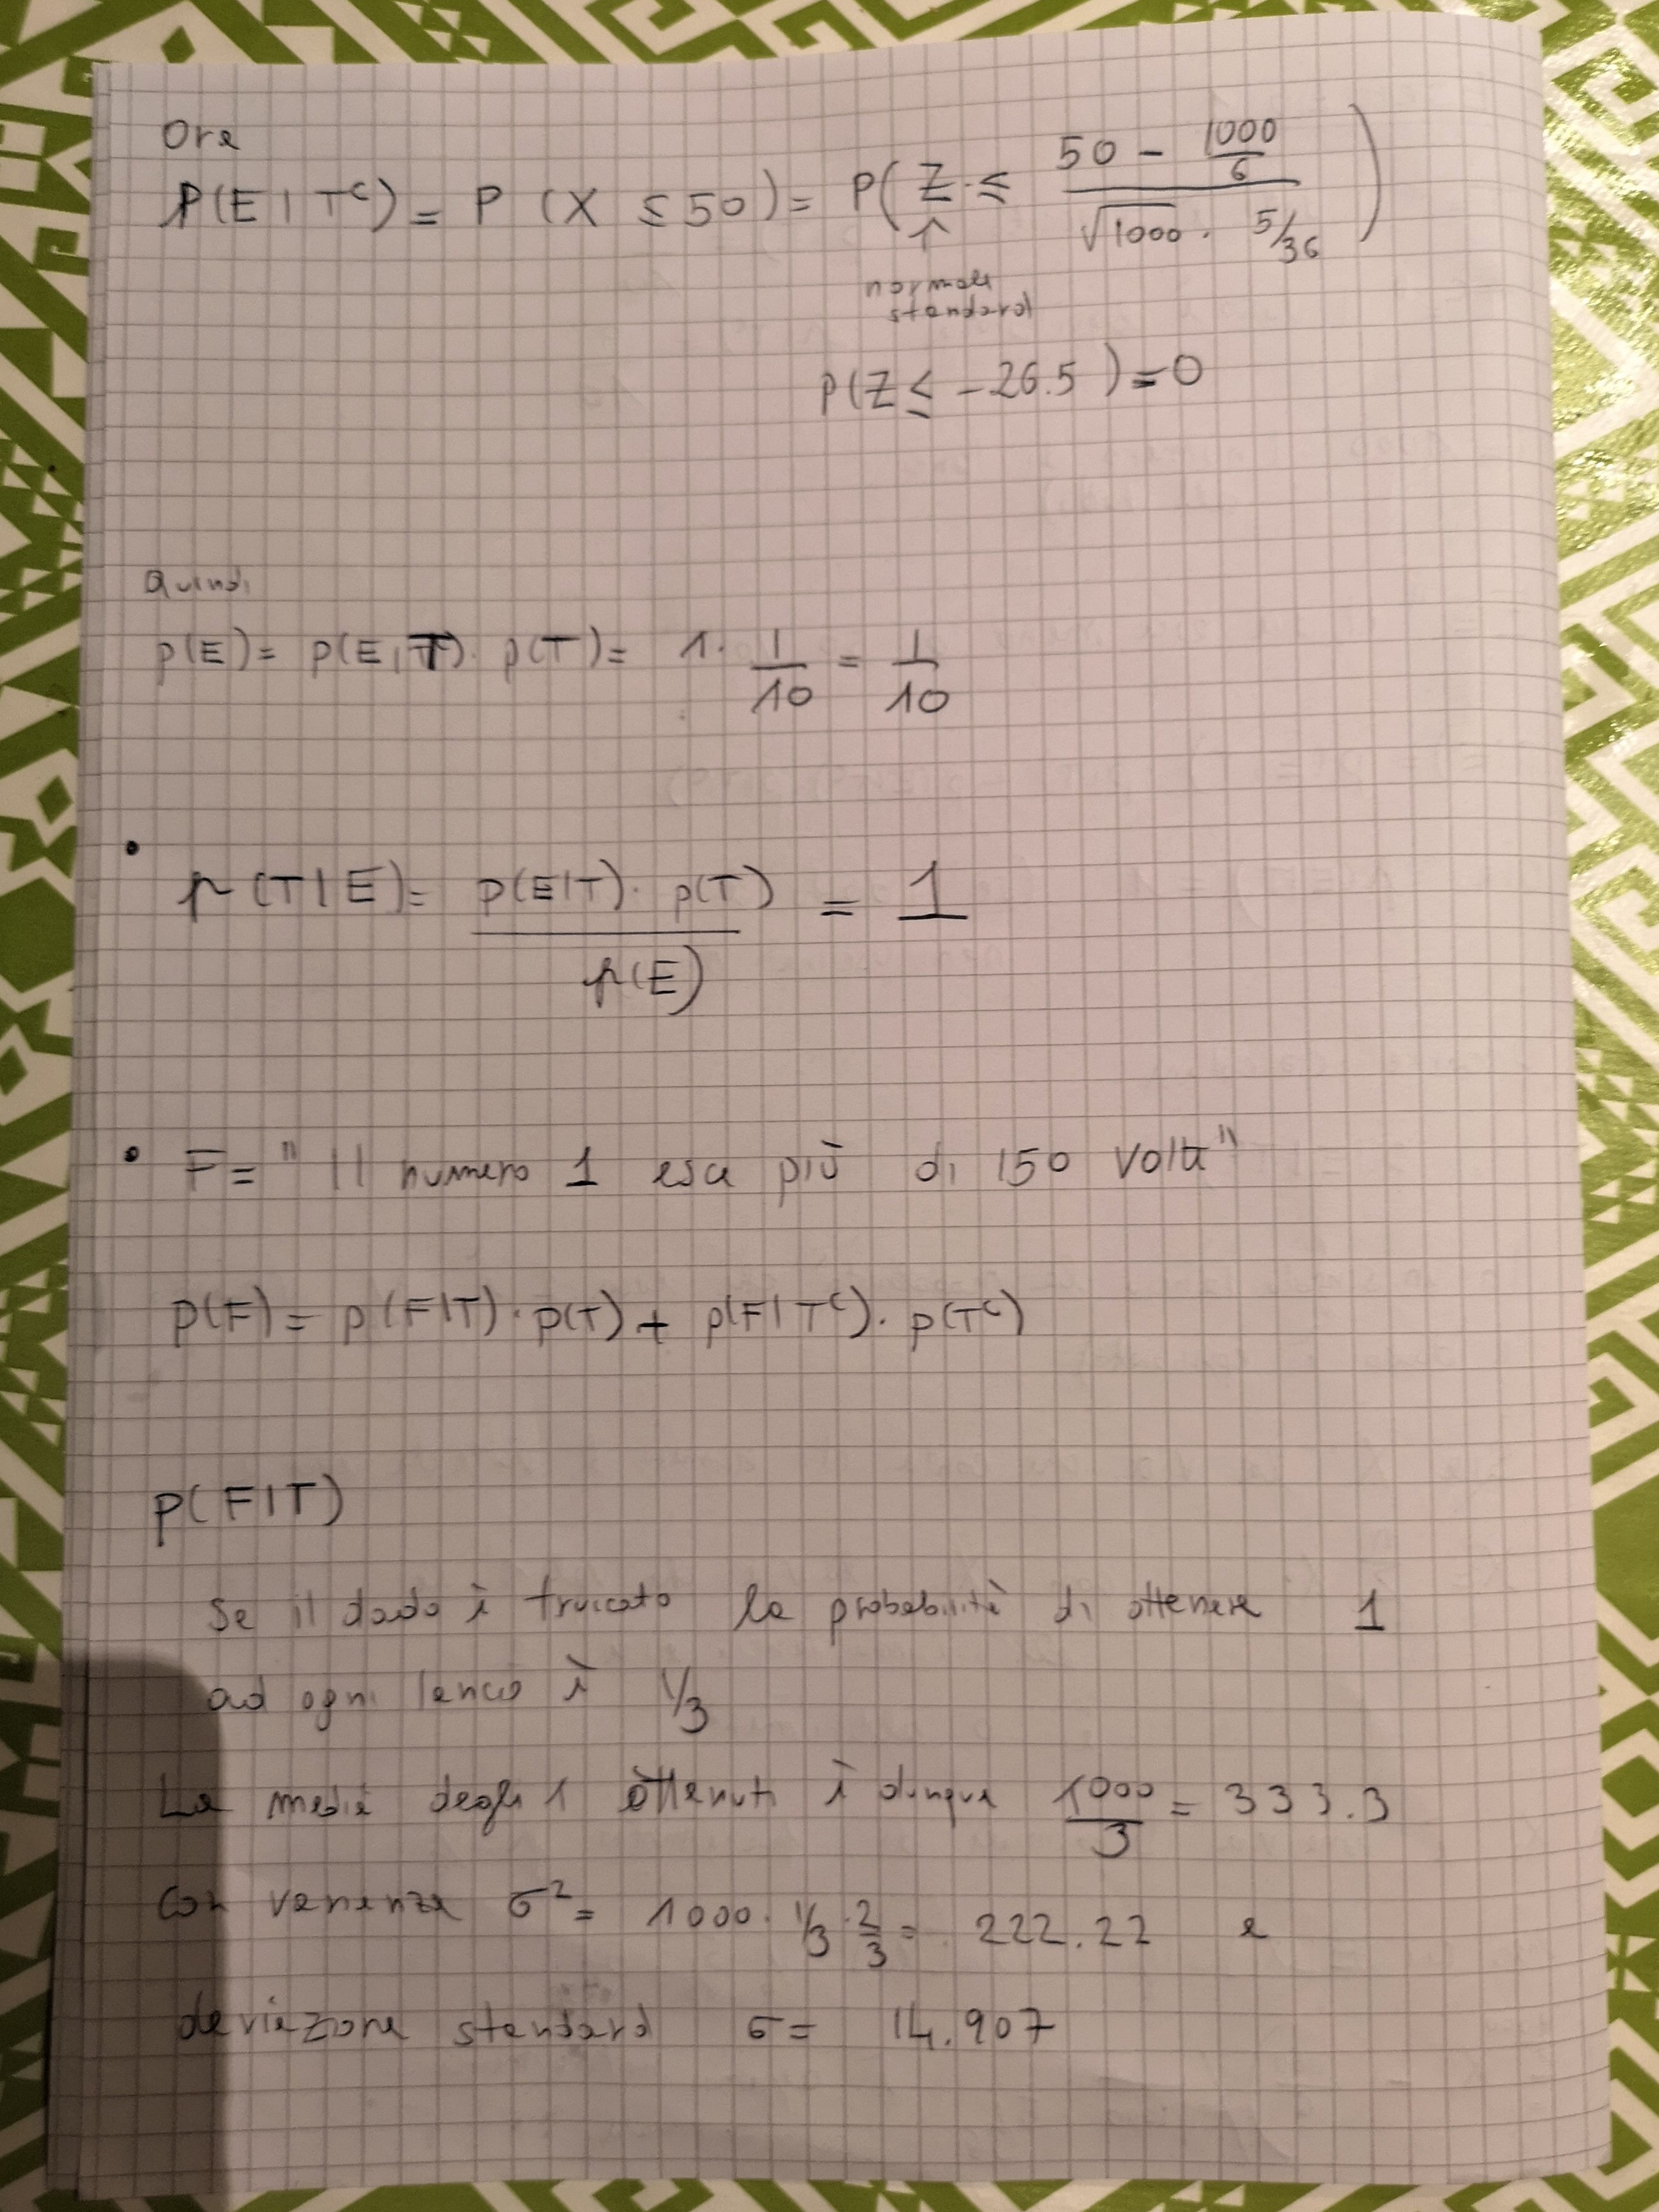 Ora
P(E|Tᶜ) = P (X ≤ 50) = P( Z ≤ (50 - 1000/6)/(√1000 · 5/36) )
↑
normale
standard
P(Z ≤ -26.5) = 0
Quindi
p(E) = p(E|T) · p(T) = 1 · 1/10 = 1/10
• p(T|E) = (p(E|T) · p(T))/p(E) = 1
• F = "Il numero 1 esce più di 150 volte"
p(F) = p(F|T) · p(T) + p(F|Tᶜ) · p(Tᶜ)
p(F|T)
Se il dado è truccato la probabilità di ottenere 1
ad ogni lancio è 1/3
La media degli 1 ottenuti è dunque 1000/3 = 333.3
con varianza σ² = 1000 · 1/3 · 2/3 = 222.22 e
deviazione standard σ = 14.907